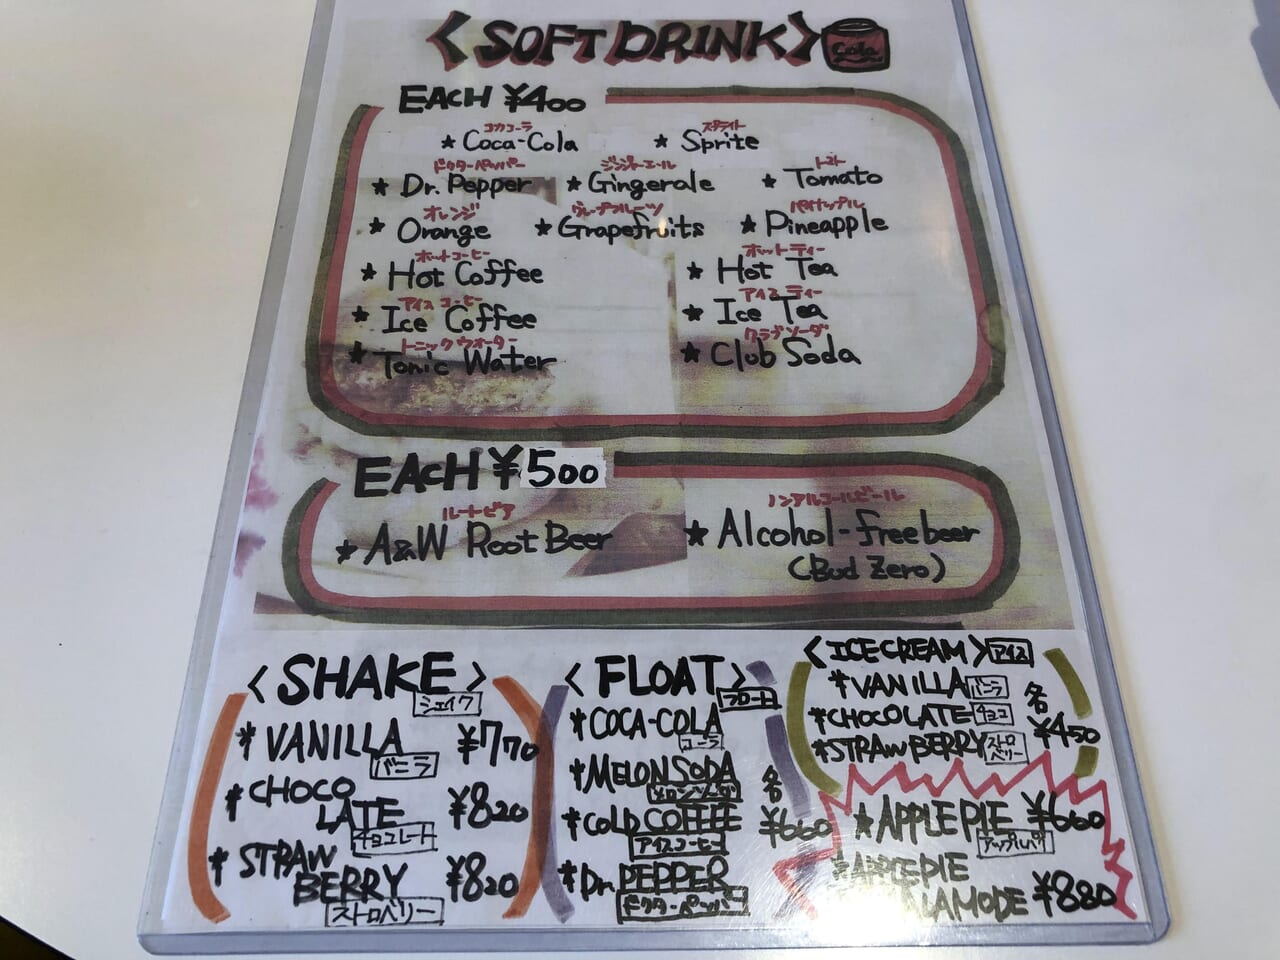 <SOFT DRINK> Cola
EACH ¥400
コカコーラ スプライト
★ Coca-Cola ★ Sprite
ドクターペッパー ジンジャーエール トマト
★ Dr. Pepper ★ Gingerale ★ Tomato
オレンジ グレープフルーツ パイナップル
★ Orange ★ Grapefruits ★ Pineapple
ホットコーヒー ホットティー
★ Hot Coffee ★ Hot Tea
アイスコーヒー アイスティー
★ Ice Coffee ★ Ice Tea
トニックウォーター クラブソーダ
★ Tonic Water ★ Club Soda
EACH ¥500
ルートビア ノンアルコールビール
★ A&W Root Beer ★ Alcohol-free beer
(Bud Zero)
<SHAKE>
シェイク
* VANILLA ¥770
バニラ
* CHOCO
LATE ¥820
チョコレート
* STRAW
BERRY ¥820
ストロベリー
<FLOAT>
フロート
* COCA-COLA
コーラ
* MELON SODA
メロンソーダ
* COLD COFFEE
アイスコーヒー
* Dr. PEPPER
ドクターペッパー
各
¥660
<ICE CREAM> アイス
* VANILLA バニラ
* CHOCOLATE チョコ
* STRAWBERRY ストロベリー
各
¥450
★ APPLE PIE ¥660
アップルパイ
* APPLE PIE
ALAMODE ¥880